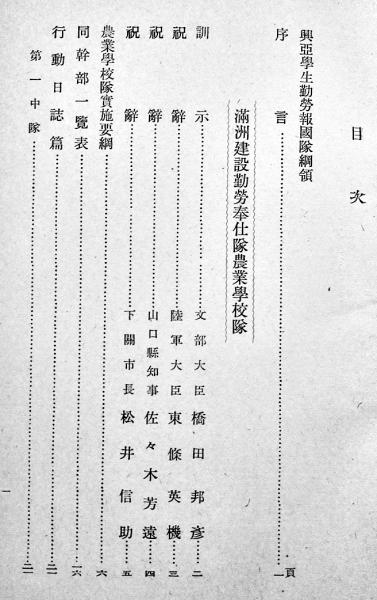 目次
興亞學生勤勞報國隊綱領
序言……一頁
滿洲建設勤勞奉仕隊農業學校隊
訓示……文部大臣 橋田邦彥…二
祝辭……陸軍大臣 東條英機…三
祝辭……山口縣知事 佐々木芳遠…四
祝辭……下關市長 松井信助…五
農業學校隊實施要綱……六
同幹部一覽表……一六
行動日誌篇……
第一中隊……
一